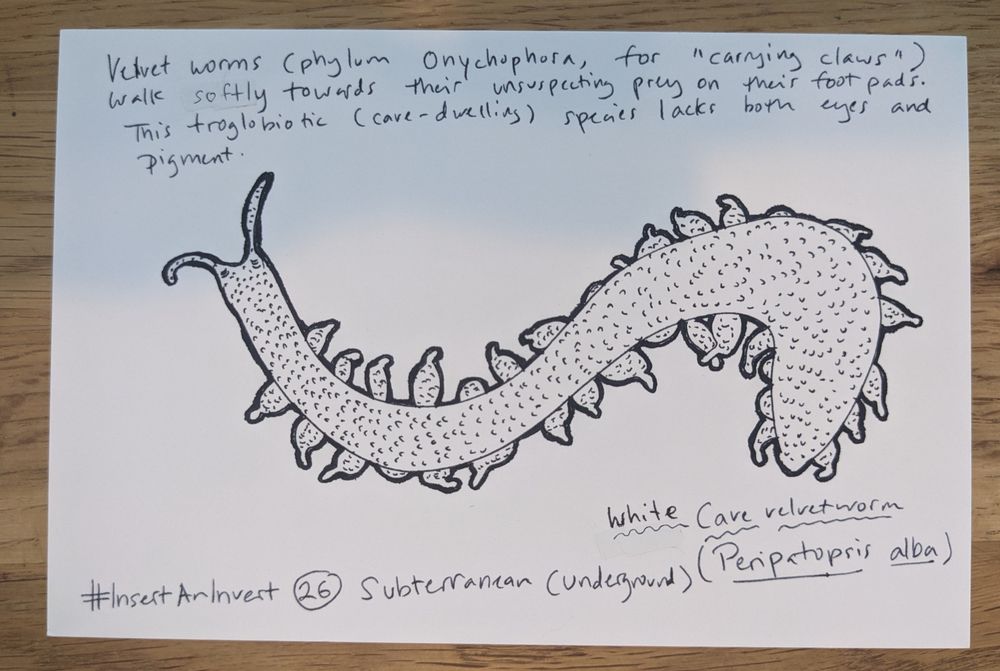 Velvet worms (phylum Onychophora, for "carrying claws")
walk softly towards their unsuspecting prey on their foot pads.
This troglobiotic (cave-dwelling) species lacks both eyes and
pigment.
White Cave velvetworm
(Peripatopsis alba)
#InsertAnInvert 26 Subterranean (underground)